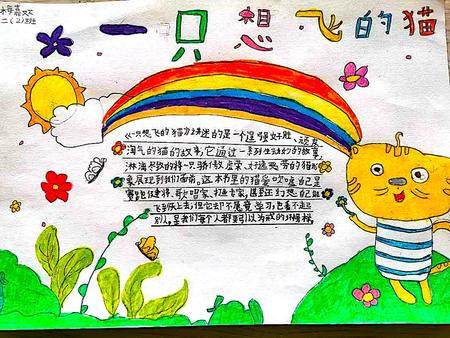 二(2)班
一只想飞的猫
《一只想飞的猫》讲述的是一个逞强好胜、顽皮
淘气的猫的故事，它通过一系列生动的故事，
淋漓尽致的将一只骄傲虚荣、好逸恶劳的猫形
象展现到我们面前。这本书里的猫爱吹嘘自己是
赛跑健将、歌唱家、专家，甚至幻想自己能
飞到天上去，但它却不愿意学习，也看不起
别人，是我们每个人都要引以为戒的坏榜样。